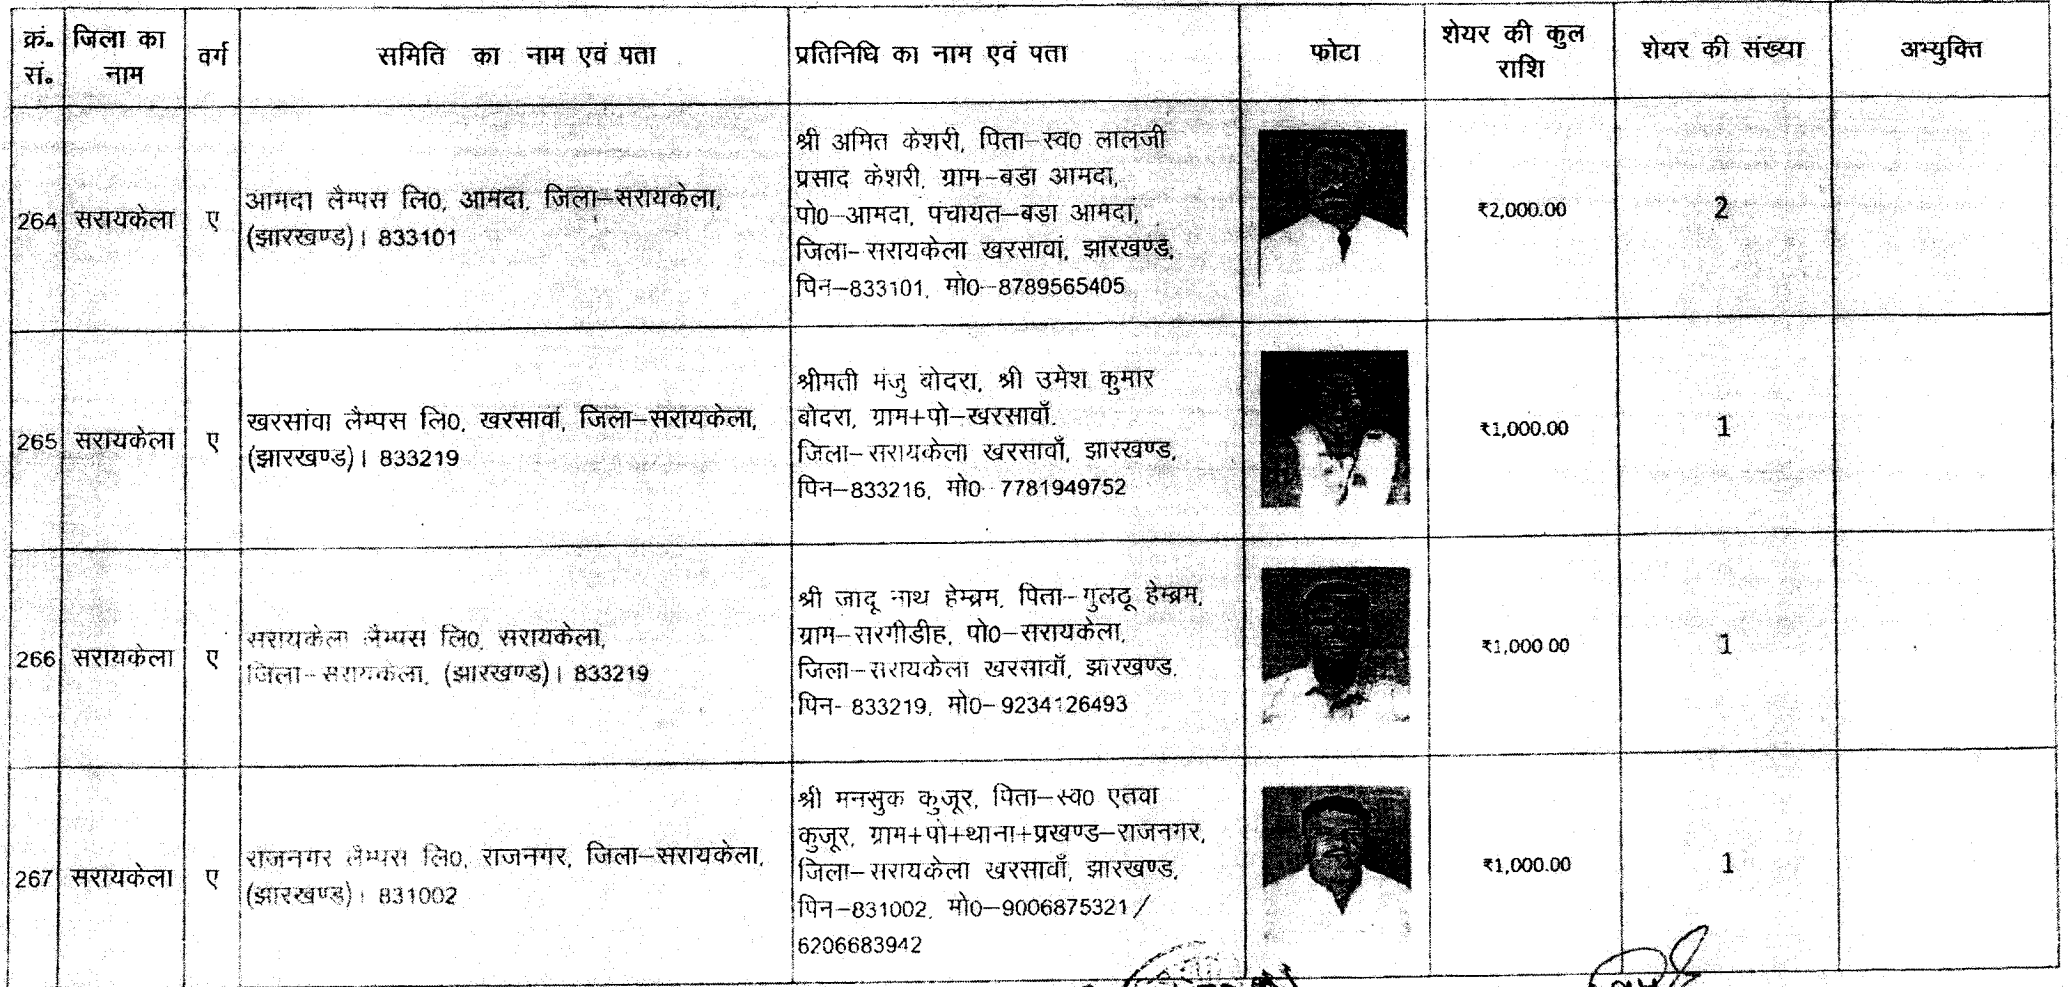 क्रं॰ सं॰
जिला का नाम
वर्ग
समिति का नाम एवं पता
प्रतिनिधि का नाम एवं पता
फोटा
शेयर की कुल राशि
शेयर की संख्या
अभ्युक्ति
264 सरायकेला ए
आमदा लैम्पस लि0, आमदा, जिला–सरायकेला,
(झारखण्ड)। 833101
श्री अमित केशरी, पिता–स्व0 लालजी
प्रसाद केशरी, ग्राम–बडा आमदा,
पो0–आमदा, पंचायत–बडा आमदा,
जिला–सरायकेला खरसावां, झारखण्ड,
पिन–833101, मो0–8789565405
₹2,000.00
2
265 सरायकेला ए
खरसांवा लैम्पस लि0, खरसावां, जिला–सरायकेला,
(झारखण्ड)। 833219
श्रीमती मंजु बोदरा, श्री उमेश कुमार
बोदरा, ग्राम+पो–खरसावाँ.
जिला–सरायकेला खरसावाँ, झारखण्ड,
पिन–833216, मो0 7781949752
₹1,000.00
1
266 सरायकेला ए
सरायकेला लैम्पस लि0, सरायकेला,
जिला–सरायकेला, (झारखण्ड)। 833219
श्री जादू नाथ हेम्ब्रम, पिता–गुलठू हेम्ब्रम,
ग्राम–सरगीडीह, पो0–सरायकेला,
जिला–सरायकेला खरसावाँ, झारखण्ड,
पिन- 833219, मो0–9234126493
₹1,000 00
1
267 सरायकेला ए
राजनगर लैम्पस लि0, राजनगर, जिला–सरायकेला,
(झारखण्ड)। 831002
श्री मनसुक कुजूर, पिता–स्व0 एतवा
कुजूर, ग्राम+पो+थाना+प्रखण्ड–राजनगर,
जिला–सरायकेला खरसावाँ, झारखण्ड,
पिन–831002, मो0–9006875321/
6206683942
₹1,000.00
1